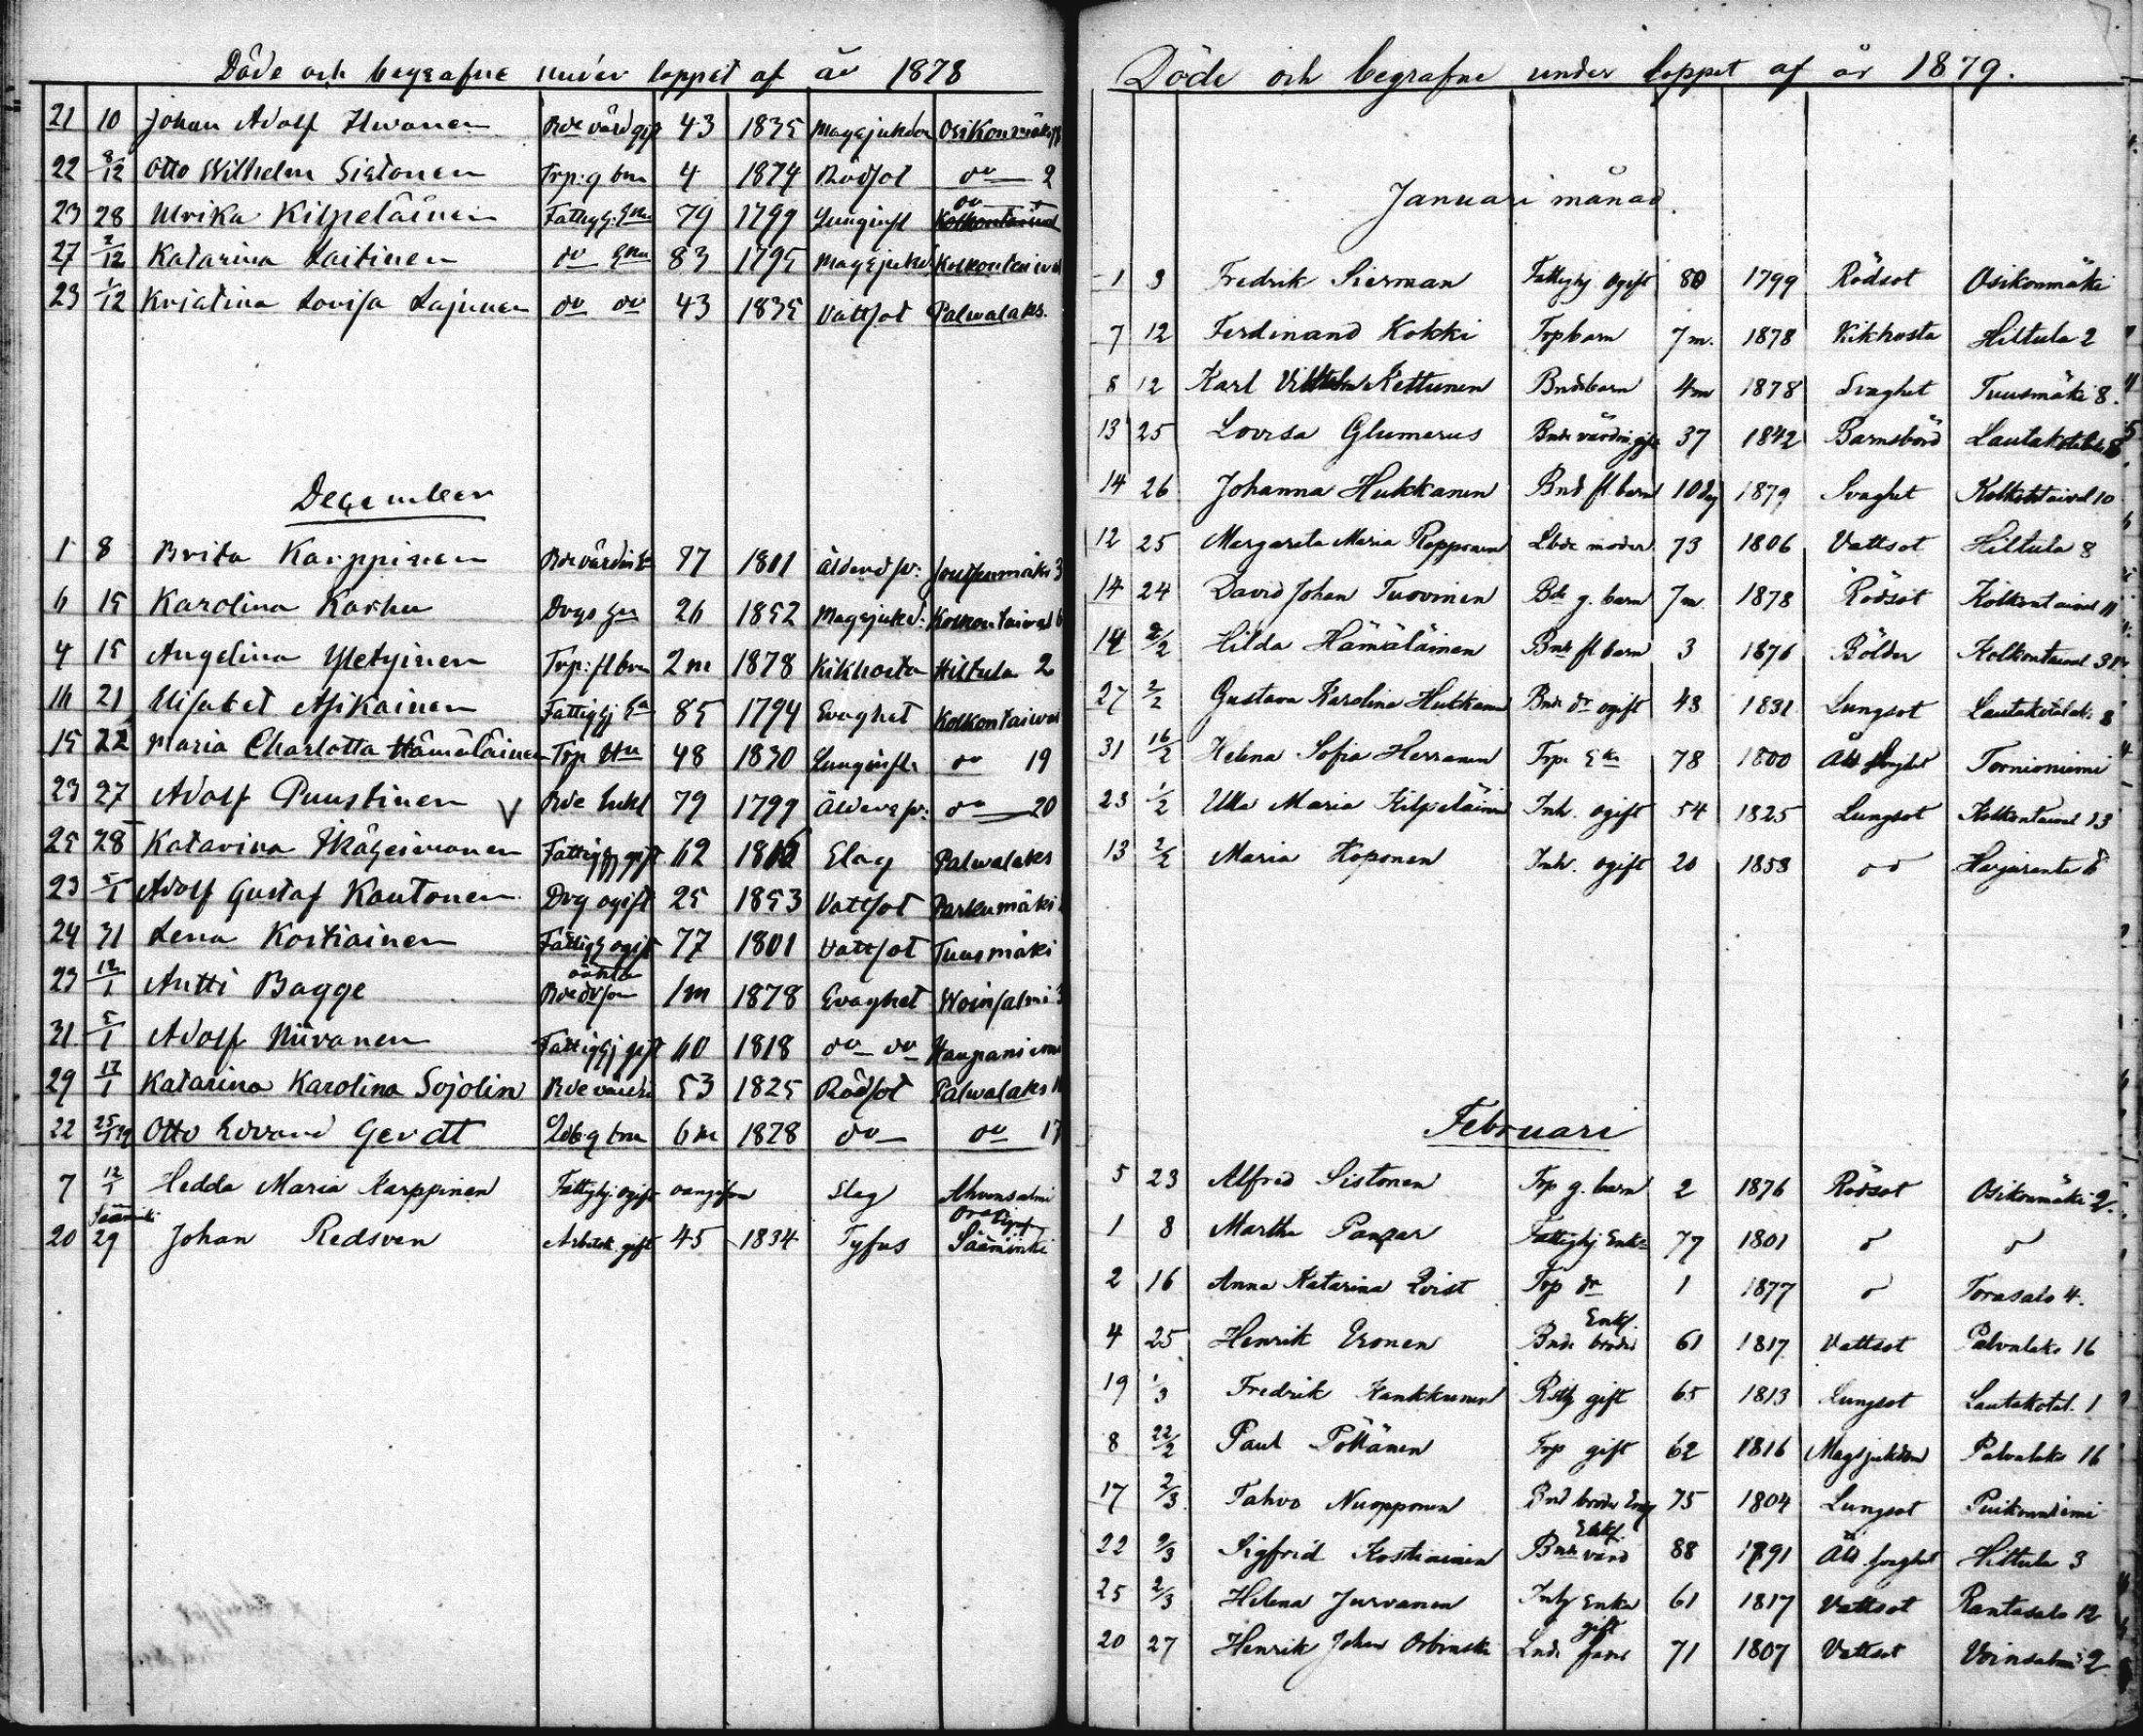 Döde och begrafne under loppet af år 1878
21 10 Johan Adolf Ihvonen Bde värd gift 43 1835 Magsjukdom Osikonmäki
22 8/12 Otto Wilhelm Sistonen Trp: g brn 4 1874 Rödsot do 2
23 28 Ulrika Kilpeläinen Fattighj: Enka 79 1799 Lunginfl do
27 2/12 Katarina Laitinen do Enka 83 1795 Magsjukd. Kolkontaival
23 1/12 Kristina Lovisa Lajunen do do 43 1835 Vattsot Palvalaks.
December
1 8 Brita Karppinen 77 1801 Joutsenmäki 3
6 15 Karolina Karhu 26 1852 Magsjukd: Kolkontaival 6
4 15 Angelina Yletyinen Trp: fl brn 2 m 1878 Kikhosta Hiltula 2
11 21 Elisabet Asikainen Fattighj Ea 85 1794 Svaghet Kolkontaival
15 22 Maria Charlotta Hämäläinen Trp Hu 48 1830 Lunginfl. do 19
23 27 Adolf Puustinen V Bde Enkl 79 1799 do 20
25 28 Katarina Fattighj gift 62 1816 Slag Palvalaks
23 5/1 Adolf Gustaf Kautonen Drg ogift 25 1853 Vattsot Parkumäki
24 31 Lena Kostiainen Fattighj ogift 77 1801 Vattsot Tuusmäki
23 12/1 Antti Bagge oäkta Bde dr son 1 m 1878 Svaghet Woinsalmi 3
31 5/1 Adolf Niiranen Fattighj gift 60 1818 do do Haupaniemi
29 12/1 Katarina Karolina Sojolin Bde värdi 53 1825 Rödsot Palvalaks
22 25/1 79 Otto Edvard Gerdt g brn 6 m 1878 do do 17
7 12/1 Hedda Maria Karppinen Fattighj. ogift Slag Ahvensalmi
20 Sääminki 29 Johan Redsven Arbetsk. gift 45 1834 Tyfus Sääminki
Döde och begrafne under loppet af år 1879.
Januari månad.
1 3 Fredrik Sierman Fattighj ogift 80 1799 Rödsot Osikonmäki
7 12 Ferdinand Kokki Trp barn 7 m. 1878 Kikhosta Hiltula 2
8 12 Karl Vilhelm Kettunen Bnde barn 4 m 1878 Svaghet Tuusmäki 8.
13 25 Lovisa Glumerus Bnde värdin gift 37 1842 Barnsbörd Lautakotalaks 8
14 26 Johanna Hukkanen Bnd fl. barn 10 dg 1879 Svaghet Kolkontaival 10
12 25 Margareta Maria Lbde moder 73 1806 Vattsot Hiltula 8
14 24 David Johan Tuovinen Bde g. barn 7 m. 1878 Rödsot Kolkontaival 11
14 2/2 Hilda Hämäläinen Bnde fl barn 3 1876 Bölder Kolkontaival 31
27 2/2 Gustava Karolina Hukkanen Bnde dr ogift 48 1831 Lungsot Lautakotalaks 8
31 16/2 Helena Sofia Herranen Trp. Eka 78 1800 Åld. svaghet Tornioniemi
23 1/2 Ulla Maria Kilpeläinen Inh. ogift 54 1825 Lungsot Kolkontaival 13
13 2/2 Maria Koponen Inh. ogift 20 1858 do Harjuranta 6
Februari
5 23 Alfred Sistonen Trp g. barn 2 1876 Rödsot Osikonmäki 2.
1 8 Martha Panzar Fattighj Enka 77 1801 d d
2 16 Anna Katarina Qvist Trp dr 1 1877 d Torasalo 4.
4 25 Henrik Eronen Bnde broder Enkl. 61 1817 Vattsot Palvalaks 16
19 1/3 Fredrik Kankkunen gift 65 1813 Lungsot Lautakotal. 1
8 22/2 Paul Pöllänen Trp gift 62 1816 Magsjukdom Palvalaks 16
17 2/3 Tahvo Nuopponen Bnd broder Enkl 75 1804 Lungsot
22 9/3 Sigfrid Kostiainen Bnde värd Enkl. 88 1791 Åld. svaghet Hiltula 3
25 2/3 Helena Jurvanen Inhj Enka 61 1817 Vattsot Rantasalo 12
20 27 Henrik Johan Orbinski gift 71 1807 Vattsot Voinsalmi 2